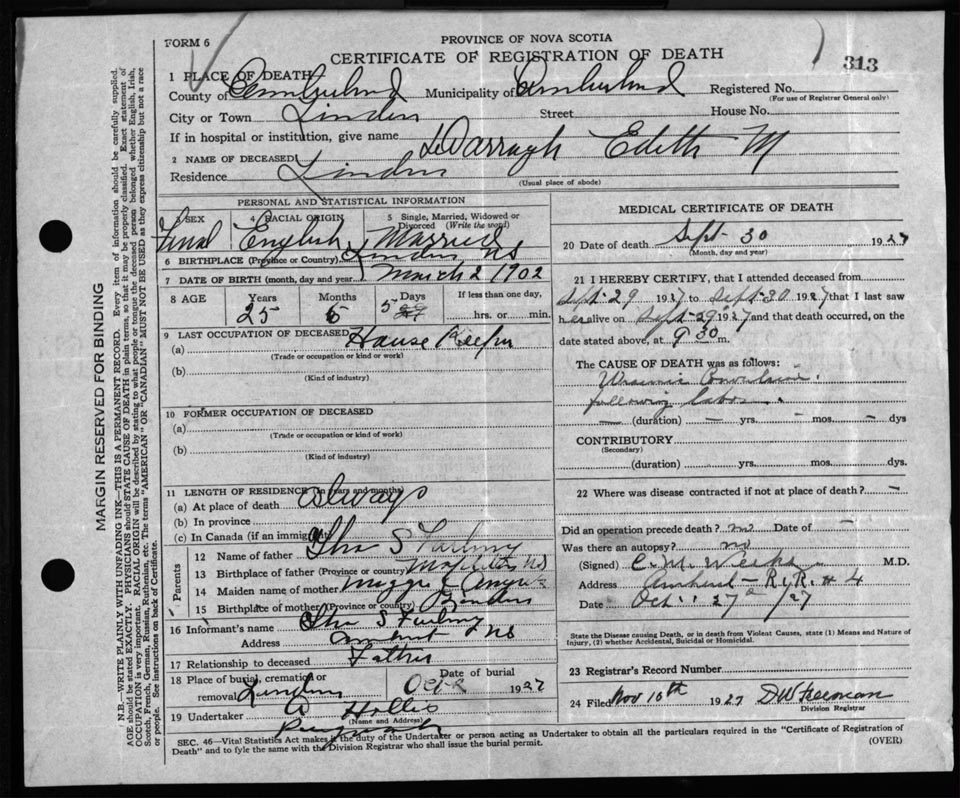 FORM 6
PROVINCE OF NOVA SCOTIA
CERTIFICATE OF REGISTRATION OF DEATH
313
1 PLACE OF DEATH
County of Cumberland Municipality of Cumberland Registered No.
(For use of Registrar General only)
City or Town Linden Street House No.
If in hospital or institution, give name
2 NAME OF DECEASED Darragh Edith M
Residence Linden
(Usual place of abode)
PERSONAL AND STATISTICAL INFORMATION
3 SEX 4 RACIAL ORIGIN 5 Single, Married, Widowed or Divorced (Write the word)
Femal English Married
6 BIRTHPLACE (Province or Country) Linden NS
7 DATE OF BIRTH (month, day and year) March 2 1902
8 AGE Years Months Days If less than one day,
25 6 hrs. or min.
9 LAST OCCUPATION OF DECEASED House Keeper
(a)
(Trade or occupation or kind or work)
(b)
(Kind of industry)
10 FORMER OCCUPATION OF DECEASED
(a)
(Trade or occupation or kind of work)
(b)
(Kind of industry)
11 LENGTH OF RESIDENCE (in years and months)
(a) At place of death always
(b) In province
(c) In Canada (if an immigrant)
Parents
12 Name of father S
13 Birthplace of father (Province or country) NS
14 Maiden name of mother
15 Birthplace of mother (Province or country) Linden
16 Informant's name S
Address Amherst NS
17 Relationship to deceased Father
18 Place of burial, cremation or removal Linden Date of burial Oct 2 1927
19 Undertaker A Hollis
(Name and Address)
Pugwash
MEDICAL CERTIFICATE OF DEATH
20 Date of death Sept 30 1927
(Month, day and year)
21 I HEREBY CERTIFY, that I attended deceased from
Sept. 29 1927 to Sept. 30 1927 that I last saw
her alive on Sept. 29 1927 and that death occurred, on the
date stated above, at 9 30 m.
The CAUSE OF DEATH was as follows:
Uraemic Convulsions
following labor.
— (duration) — yrs. – mos. – dys
CONTRIBUTORY
(Secondary)
(duration) yrs. mos. dys.
22 Where was disease contracted if not at place of death? –
Did an operation precede death? no Date of –
Was there an autopsy? no
(Signed) C. M. M.D.
Address Amherst – R.R. # 4
Date Oct. 27 /27
State the Disease causing Death, or in death from Violent Causes, state (1) Means and Nature of
Injury, (2) whether Accidental, Suicidal or Homicidal.
23 Registrar's Record Number
24 Filed Nov 10th 1927 D W Freeman
Division Registrar
SEC. 46—Vital Statistics Act makes it the duty of the Undertaker or person acting as Undertaker to obtain all the particulars required in the "Certificate of Registration of
Death" and to fyle the same with the Division Registrar who shall issue the burial permit.
(OVER)
MARGIN RESERVED FOR BINDING
N.B.—WRITE PLAINLY WITH UNFADING INK—THIS IS A PERMANENT RECORD. Every item of information should be carefully supplied.
AGE should be stated EXACTLY. PHYSICIANS should STATE CAUSE OF DEATH in plain terms, so that it may be properly classified. Exact statement of
OCCUPATION is very important. RACIAL ORIGIN will be described by stating to what people or tongue the deceased person belonged, whether English, Irish,
Scotch, French, German, Russian, Ruthenian, etc. The terms "AMERICAN" OR "CANADIAN" MUST NOT BE USED as they express citizenship but not a race
or people. See instructions on back of Certificate.